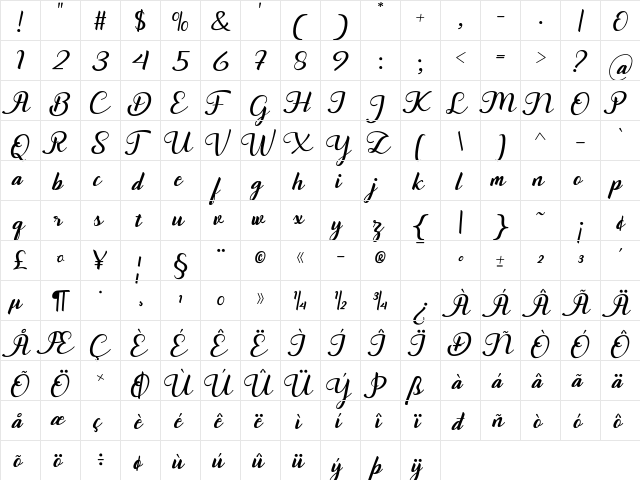 ! " # $ % & ' ( ) * + , - . / 0
1 2 3 4 5 6 7 8 9 : ; < = > ? @
A B C D E F G H I J K L M N O P
Q R S T U V W X Y Z [ \ ] ^ _ `
a b c d e f g h i j k l m n o p
q r s t u v w x y z { | } ~ ¡ ¢
£ ¤ ¥ ¦ § ¨ © « - ® ° ± ² ³ ´
µ ¶ · ¸ ¹ º » ¼ ½ ¾ ¿ À Á Â Ã Ä
Å Æ Ç È É Ê Ë Ì Í Î Ï Ð Ñ Ò Ó Ô
Õ Ö × Ø Ù Ú Û Ü Ý Þ ß à á â ã ä
å æ ç è é ê ë ì í î ï đ ñ ò ó ô
õ ö ÷ ø ù ú û ü ý þ ÿ